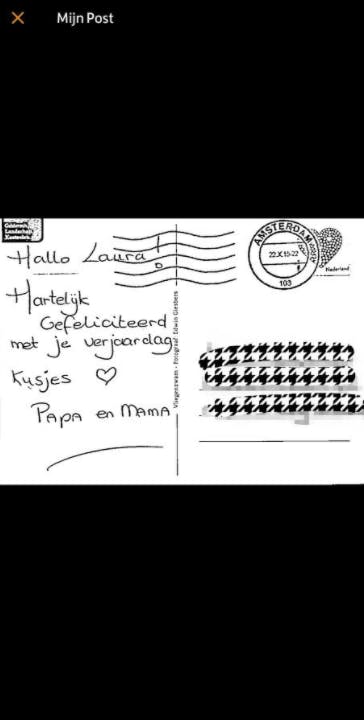 Mijn Post
Hallo Laura!
Hartelijk
Gefeliciteerd
met je verjaardag
Kusjes ♡
Papa en Mama
Vliegenzwam - Fotograaf Edwin Giesbers
AMSTERDAM
22.X.15-22
103
Nederland